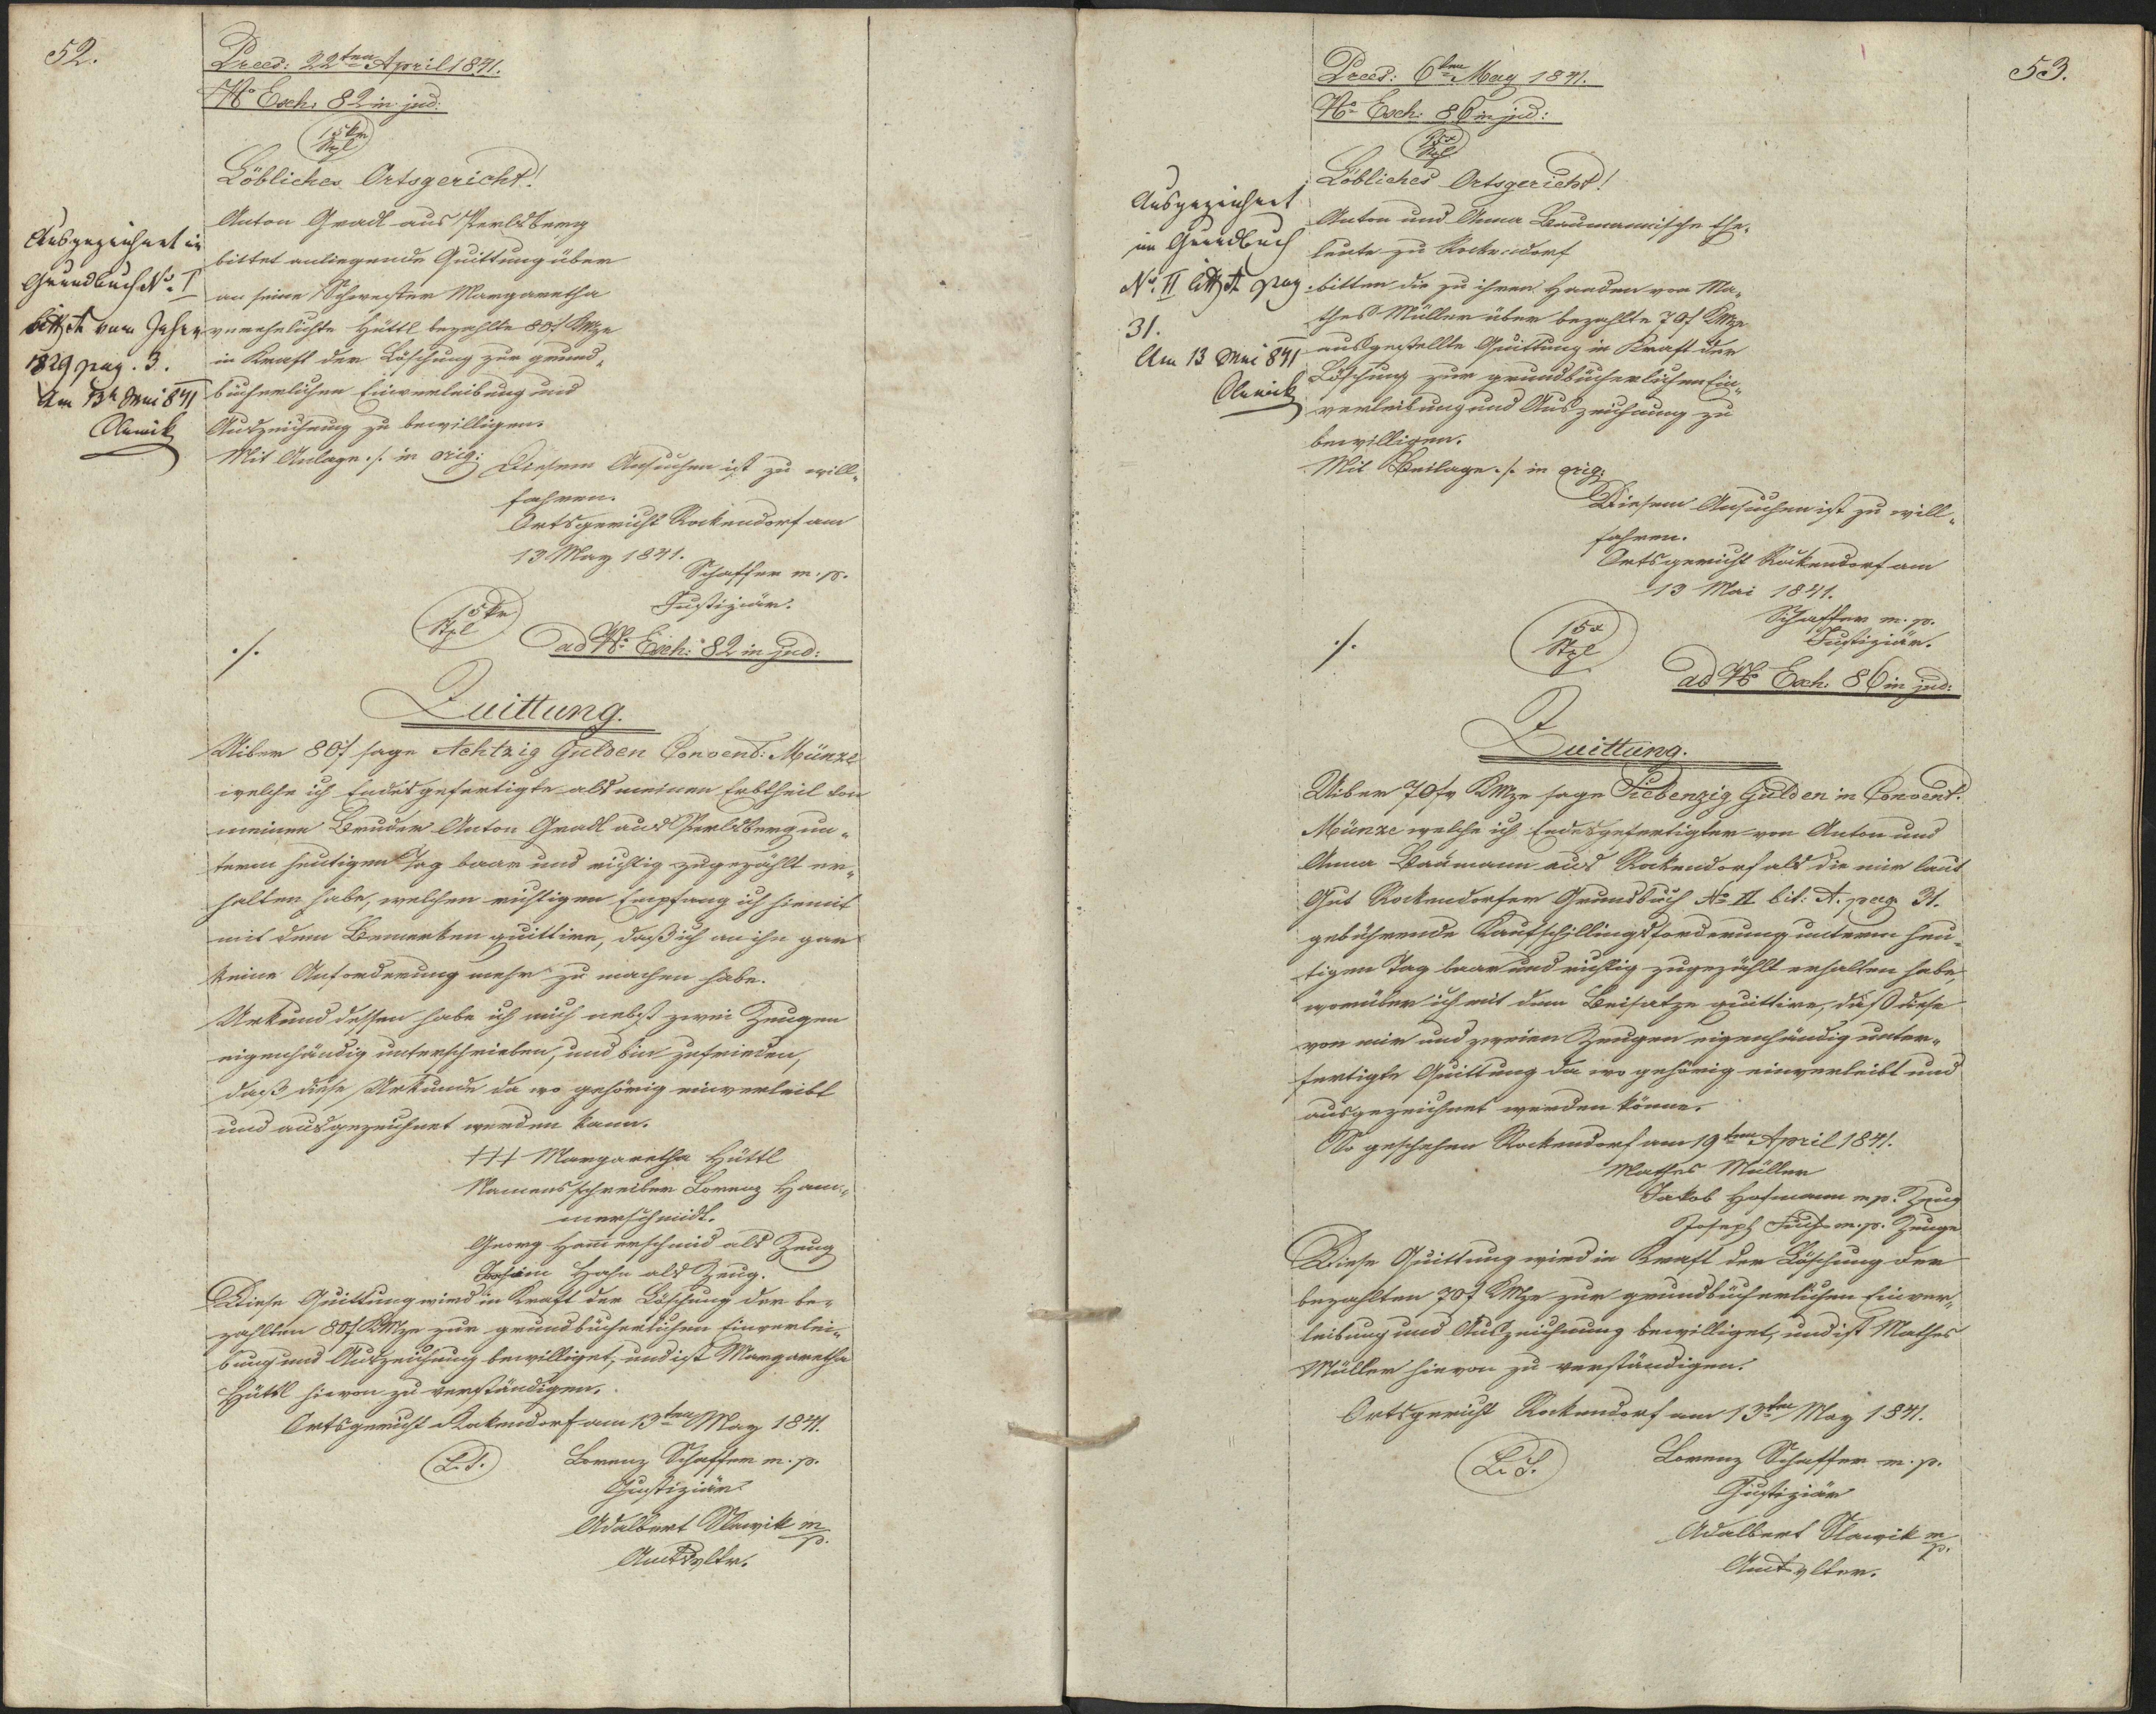 52.
Praes: 22ten April 1841.
No Exh. 82 in jud:
15 kr
Stpl
Löbliches Ortsgericht!
Anton Gradl aus Perlsberg
bittet anliegende Quittung über
an seine Schwester Margaretha
verehelichte Hüttl bezahlte 80 f KMze
in Kraft der Löschung zur grund-
bücherlichen Einverleibung und
Auszeichnung zu bewilligen.
Mit Anlage ./. in orig:
Ausgezeichnet im
Grundbuch No. I
litt A vom Jahre
1829 pag. 3.
Am 13t Mai 841
Slawik
Diesem Ansuchen ist zu will-
fahren.
Ortsgericht Rockendorf am
13 May 1841.
Schaffer m. p.
Justiziär.
15 kr
Stpl
./.
ad No. Exh: 82 in jud:
Quittung.
Uiber 80 f sage Achtzig Gulden Convent: Münze
welche ich Endesgefertigte als meinen Erbtheil von
meinem Bruder Anton Gradl aus Perlsberg un-
term heutigen Tag baar und richtig zugezählt er-
halten habe, welchen richtigen Empfang ich hiemit
mit dem Bemerken quittire, daß ich an ihn gar
keine Anforderung mehr zu machen habe.
Urkund dessen habe ich mich nebst zwei Zeugen
eigenhändig unterschrieben, und bin zufrieden,
daß diese Urkunde da wo gehörig einverleibt
und ausgezeichnet werden kann.
+++ Margaretha Hüttl
Namensschreiber Lorenz Ham-
merschmidt.
Georg Hammerschmid als Zeug
Hahn als Zeug.
Diese Quittung wird in Kraft der Löschung der be-
zahlten 80 f KMze zur grundbücherlichen Einverlei-
bung und Auszeichnung bewilliget, und ist Margaretha
Hüttl hievon zu verständigen.
Ortsgericht Rockendorf am 13ten May 1841.
L. S.
Lorenz Schaffer m. p.
Justiziär
Adalbert Slawik m/p.
Amtsvltr.
53.
Praes: 6ten May 1841.
No Exh: 86 in jud:
15x
Stpl
Löbliches Ortsgericht!
Anton und Anna Baumannische Ehe-
leute zu Rockendorf
bitten die zu ihren Handen von Ma-
thes Müller über bezahlte 70 f KMze
ausgestellte Quittung in Kraft der
Löschung zur grundbücherlichen Ein-
verleibung und Auszeichnung zu
bewilligen.
Mit Beilage ./. in orig:
Ausgezeichnet
im Grundbuch
No. II litt A pag
31.
Am 13 Mai 841
Slawik
Diesem Ansuchen ist zu will-
fahren.
Ortsgericht Rockendorf am
13 Mai 1841.
Schaffer m. p.
Justiziär.
./.
15x
Stpl
ad No Exh: 86 in jud:
Quittung.
Uiber 70 fr KMze sage Siebenzig Gulden in Convent.
Münze welche ich Endesgefertigter von Anton und
Anna Baumann aus Rockendorf als die mir laut
Gut Rockendorfer Grundbuch No II lit: A. pag. 31.
gebührende Kaufschillingsforderung unterm heu-
tigen Tag baar und richtig zugezählt erhalten habe,
worüber ich mit dem Beisatze quittire, daß diese
von mir und zweien Zeugen eigenhändig unter-
fertigte Quittung da wo gehörig einverleibt und
ausgezeichnet werden könne.
So geschehen Rockendorf am 19ten April 1841.
Mathes Müller
Jakob Hofmann m. p. Zeug
Joseph Fuchs m. p. Zeuge
Diese Quittung wird in Kraft der Löschung der
bezahlten 70 f KMze zur grundbücherlichen Einver-
leibung und Auszeichnung bewilliget, und ist Mathes
Müller hievon zu verständigen.
Ortsgericht Rockendorf am 13ten May 1841.
L. S.
Lorenz Schaffer m. p.
Justiziär
Adalbert Slawik m/p.
Amtsvlter.